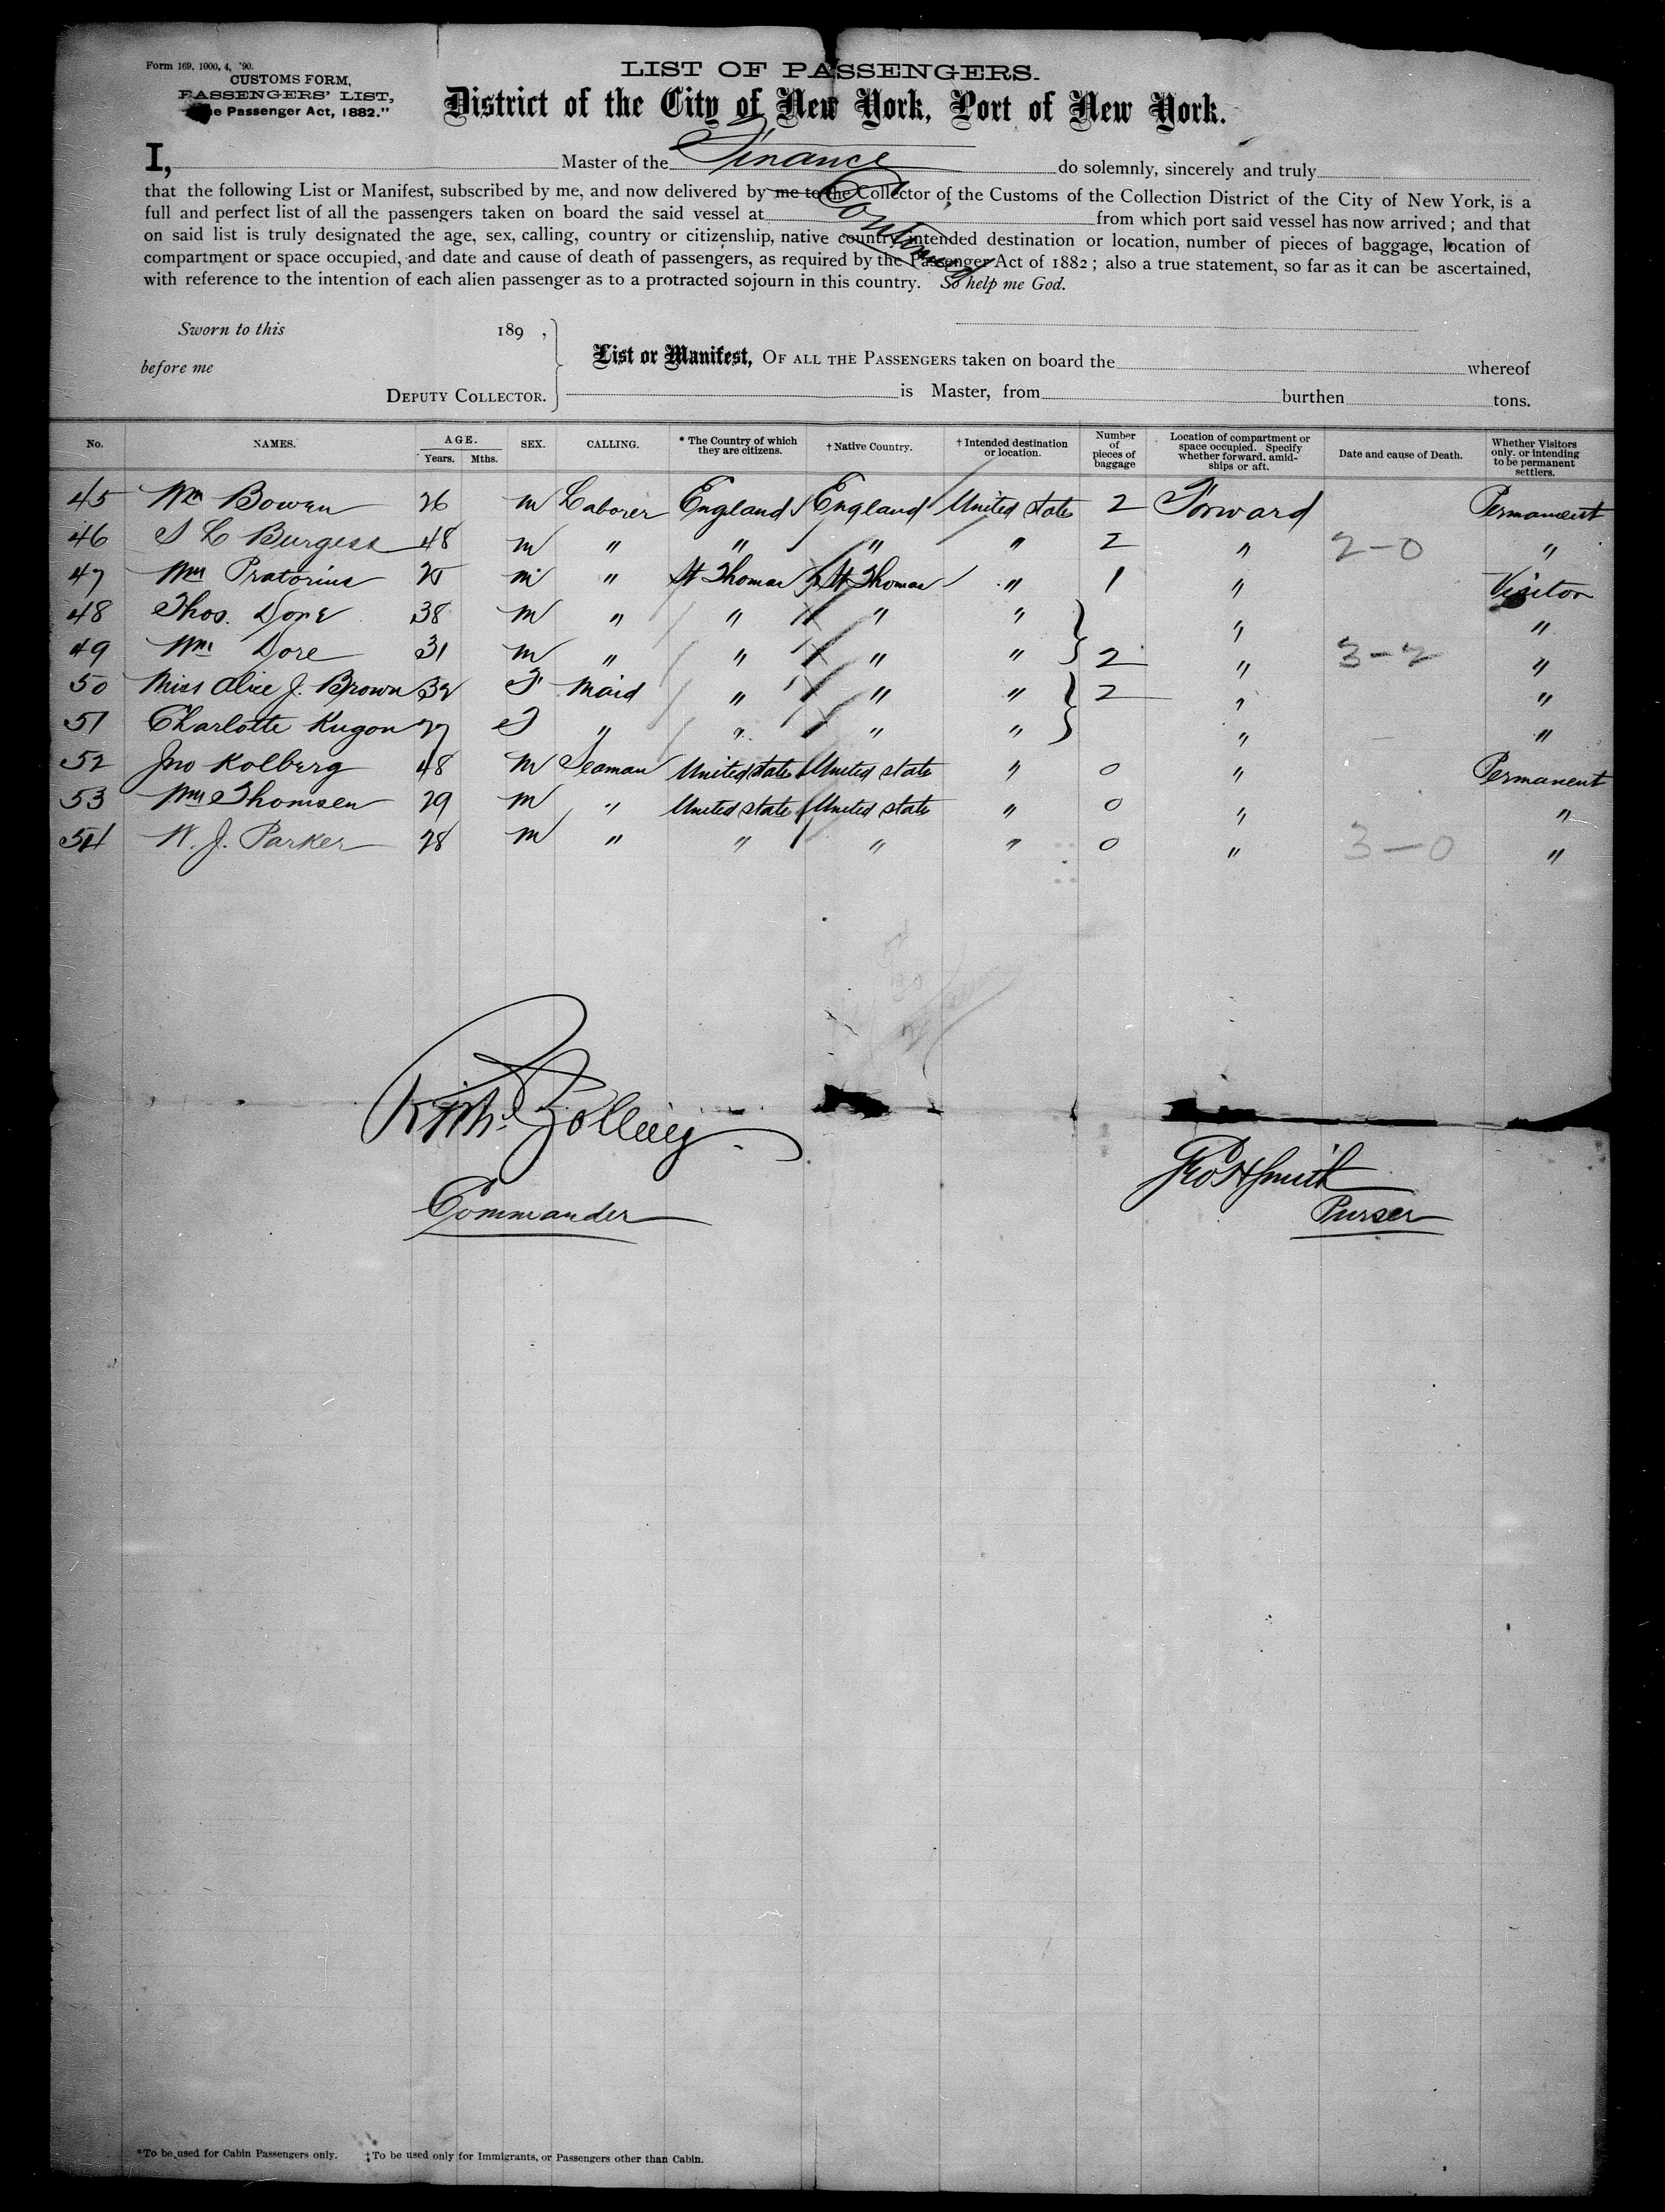 Form 169, 1000, 4, '90.
CUSTOMS FORM,
PASSENGERS' LIST,
e Passenger Act, 1882."
LIST OF PASSENGERS.
District of the City of New York, Port of New York.
I, Master of the Finance do solemnly, sincerely and truly
that the following List or Manifest, subscribed by me, and now delivered by me to the Collector of the Customs of the Collection District of the City of New York, is a
full and perfect list of all the passengers taken on board the said vessel at from which port said vessel has now arrived; and that
on said list is truly designated the age, sex, calling, country or citizenship, native country, intended destination or location, number of pieces of baggage, location of
compartment or space occupied, and date and cause of death of passengers, as required by the Passenger Act of 1882; also a true statement, so far as it can be ascertained,
with reference to the intention of each alien passenger as to a protracted sojourn in this country. So help me God.
Continued
Sworn to this 189 ,
before me
DEPUTY COLLECTOR.
List or Manifest, OF ALL THE PASSENGERS taken on board the whereof
is Master, from burthen tons.
No. NAMES. AGE. Years. Mths. SEX. CALLING. * The Country of which they are citizens. † Native Country. † Intended destination or location. Number of pieces of baggage Location of compartment or space occupied. Specify whether forward, amidships or aft. Date and cause of Death. Whether Visitors only, or intending to be permanent settlers.
45 Wm Bowen 26 m Laborer England England United State 2 Forward Permanent
46 S L Burgess 48 m " " " " 2 " 2-0 "
47 Wm Pratorius 25 m " St Thomas St Thomas " 1 " Visitor
48 Thos. Dore 38 m " " " " " "
49 Wm Dore 31 m " " " " 2 " 3-2 "
50 Miss Alice J. Brown 32 F Maid " " " 2 " "
51 Charlotte Kugon 27 F " " " " " "
52 Jno Kolberg 48 m Seaman United State United State " 0 " Permanent
53 Wm Thomsen 29 m " United State United State " 0 " "
54 W. J. Parker 28 m " " " " 0 " 3-0 "
Commander
Geo H Smith
Purser
*To be used for Cabin Passengers only. ‡To be used only for Immigrants, or Passengers other than Cabin.